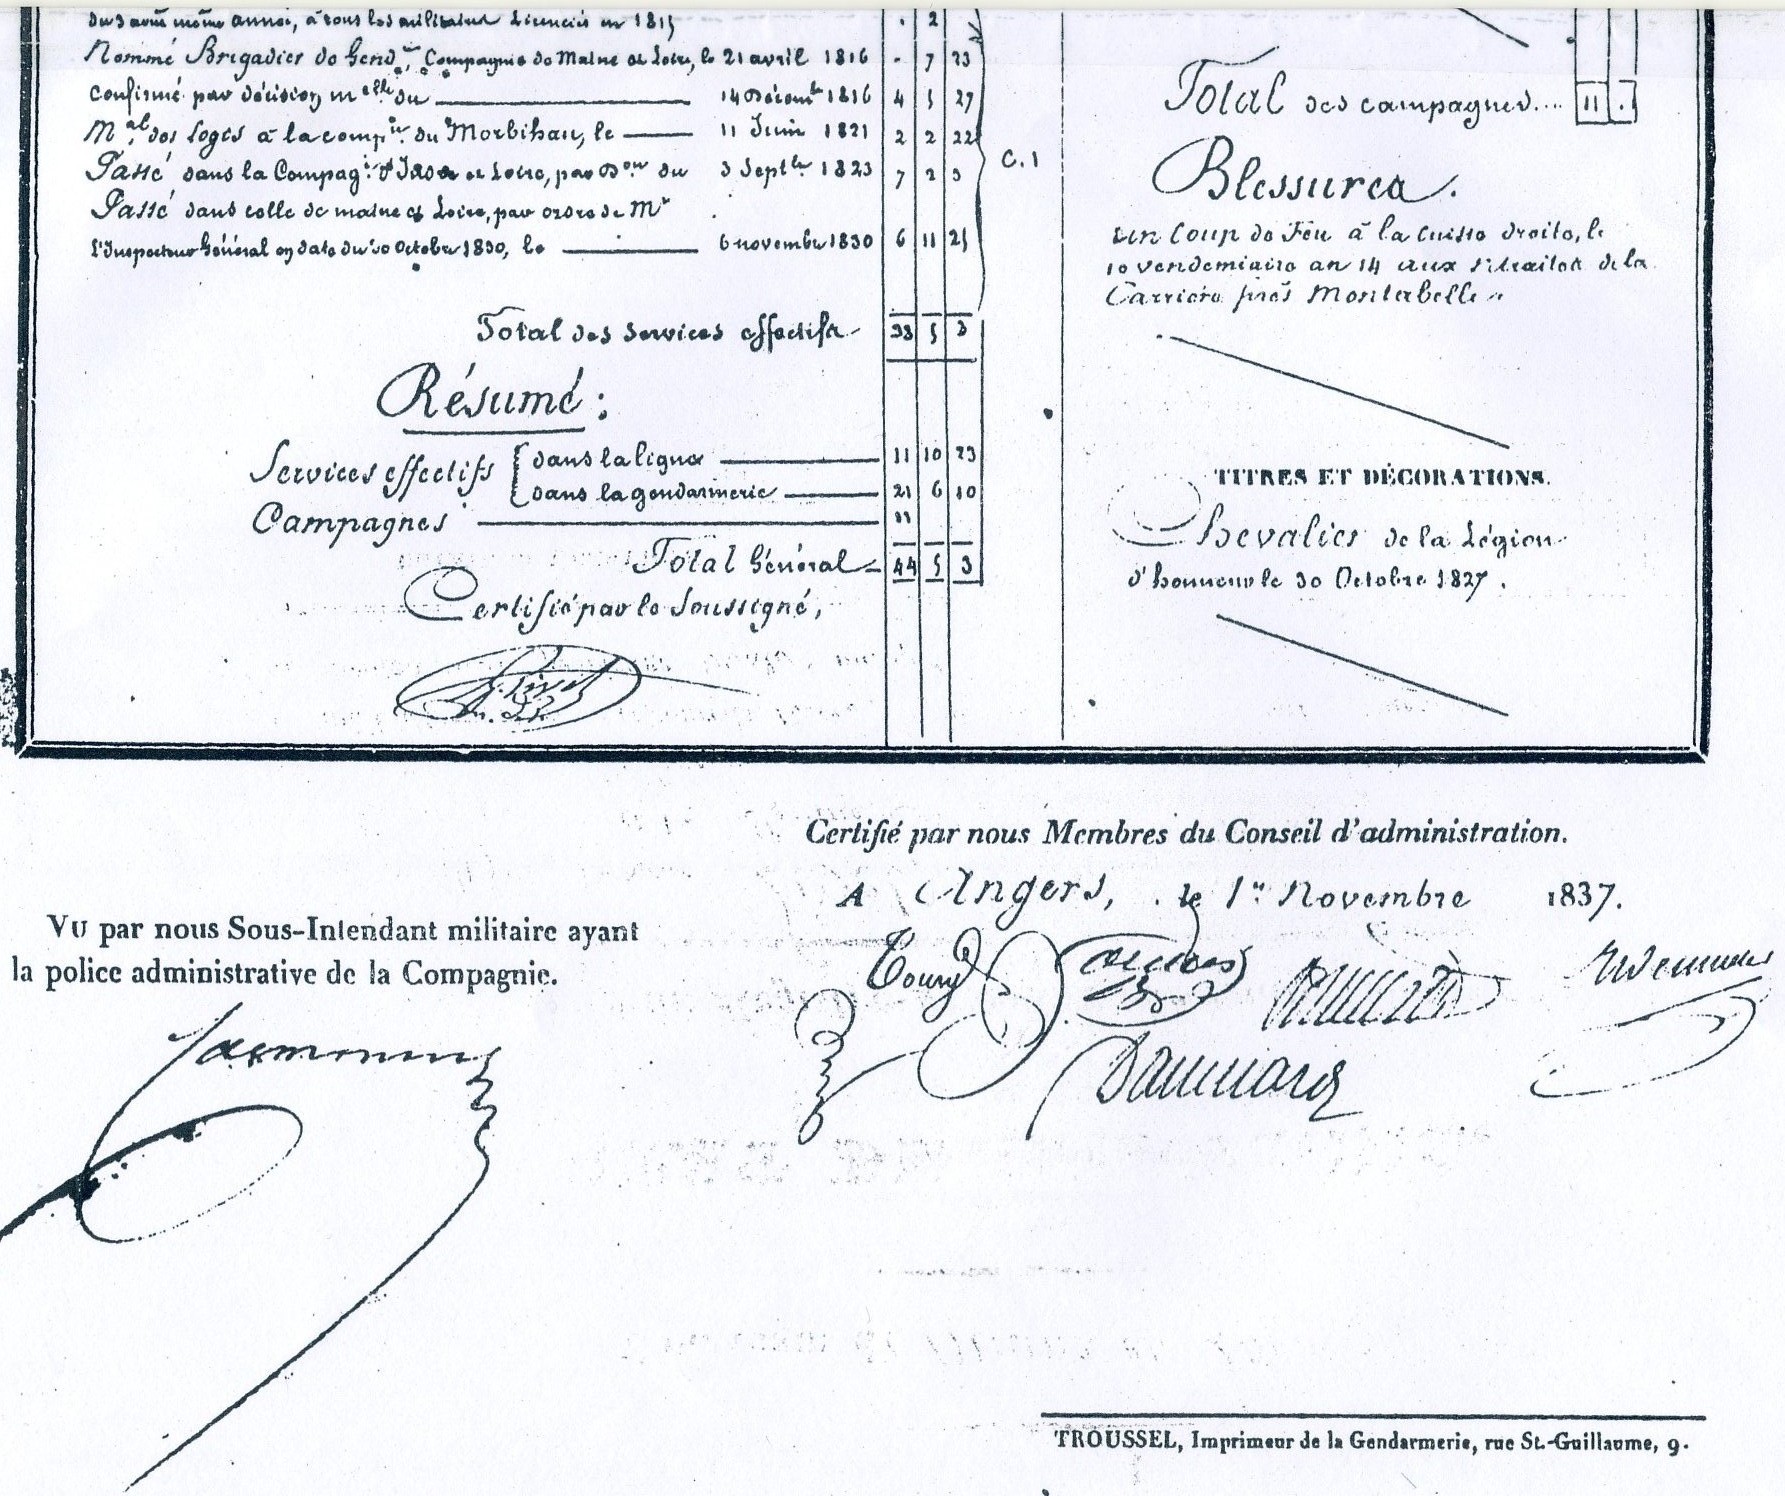 du 3 avril même année, à tous les militaires Licenciés en 1815 . 2
Nommé Brigadier de Gend.ie, Compagnie de Maine et Loire, le 21 avril 1816 - 7 23
Confirmé par décision m.elle du 14 Décembre 1816 4 5 27
M.al des Logis à la comp.ie du Morbihan, le 11 Juin 1821 2 2 22
Passé dans la Compag.ie d'Indre et Loire, par D.on du 3 Sept.bre 1823 7 2 3
Passé dans celle de maine et Loire, par ordre de M.r
l'Inspecteur Général en date du 20 Octobre 1830, le 6 novembre 1830 6 11 25
C. 1
Total des services effectifs 33 5 3
Résumé :
Services effectifs dans la ligne 11 10 23
dans la gendarmerie 21 6 10
Campagnes 11
Total Général 44 5 3
Certifié par le Soussigné,
Total des campagnes.... 11 .
Blessures.
un Coup de Feu à la Cuisse droite, le
10 vendemiaire an 14 aux retraites de la
Carriere près Montebelle.
TITRES ET DÉCORATIONS.
Chevalier de la Légion
d'honneur le 30 Octobre 1827.
Certifié par nous Membres du Conseil d'administration.
A Angers, le 1er Novembre 1837.
VU par nous Sous-Intendant militaire ayant
la police administrative de la Compagnie.
TROUSSEL, Imprimeur de la Gendarmerie, rue St.-Guillaume, 9.